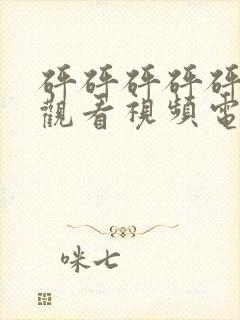 砰砰砰砰砰
觀看視頻電
咪七